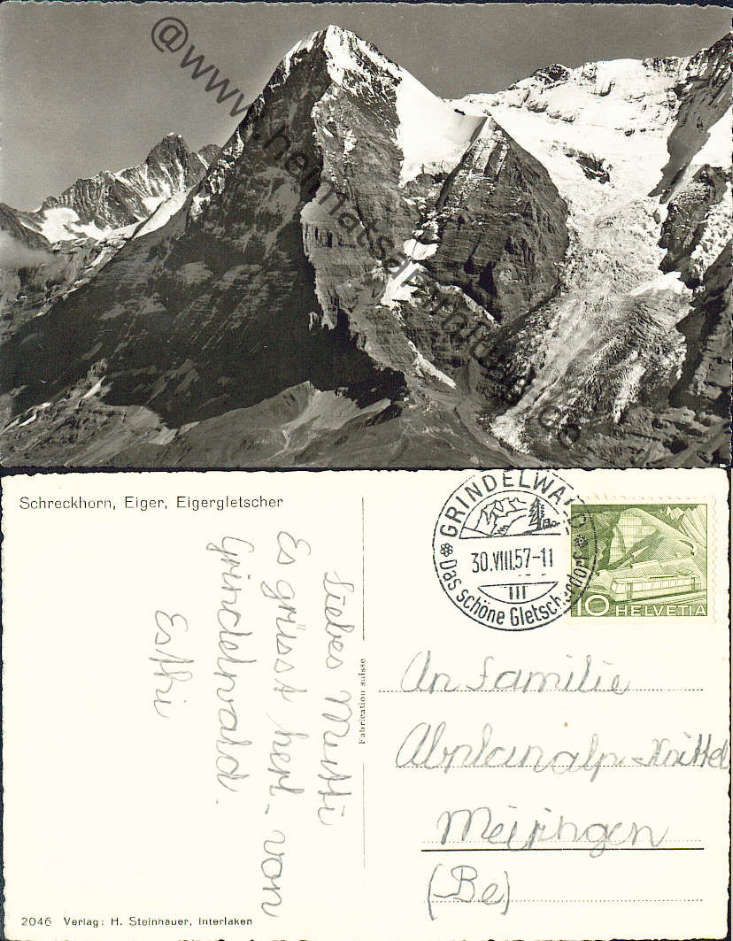 @www.heimatsammlung.de
Schreckhorn, Eiger, Eigergletscher
GRINDELWALD
30.VIII.57-11
III
Das schöne Gletscherdorf
10 HELVETIA
Liebes Mutti
Es grüsst herl- von
Grindelwald.
Esthi
Fabrication suisse
An Familie
Abplanalp-Knittel
Meiringen
(Be)
2046 Verlag: H. Steinhauer, Interlaken